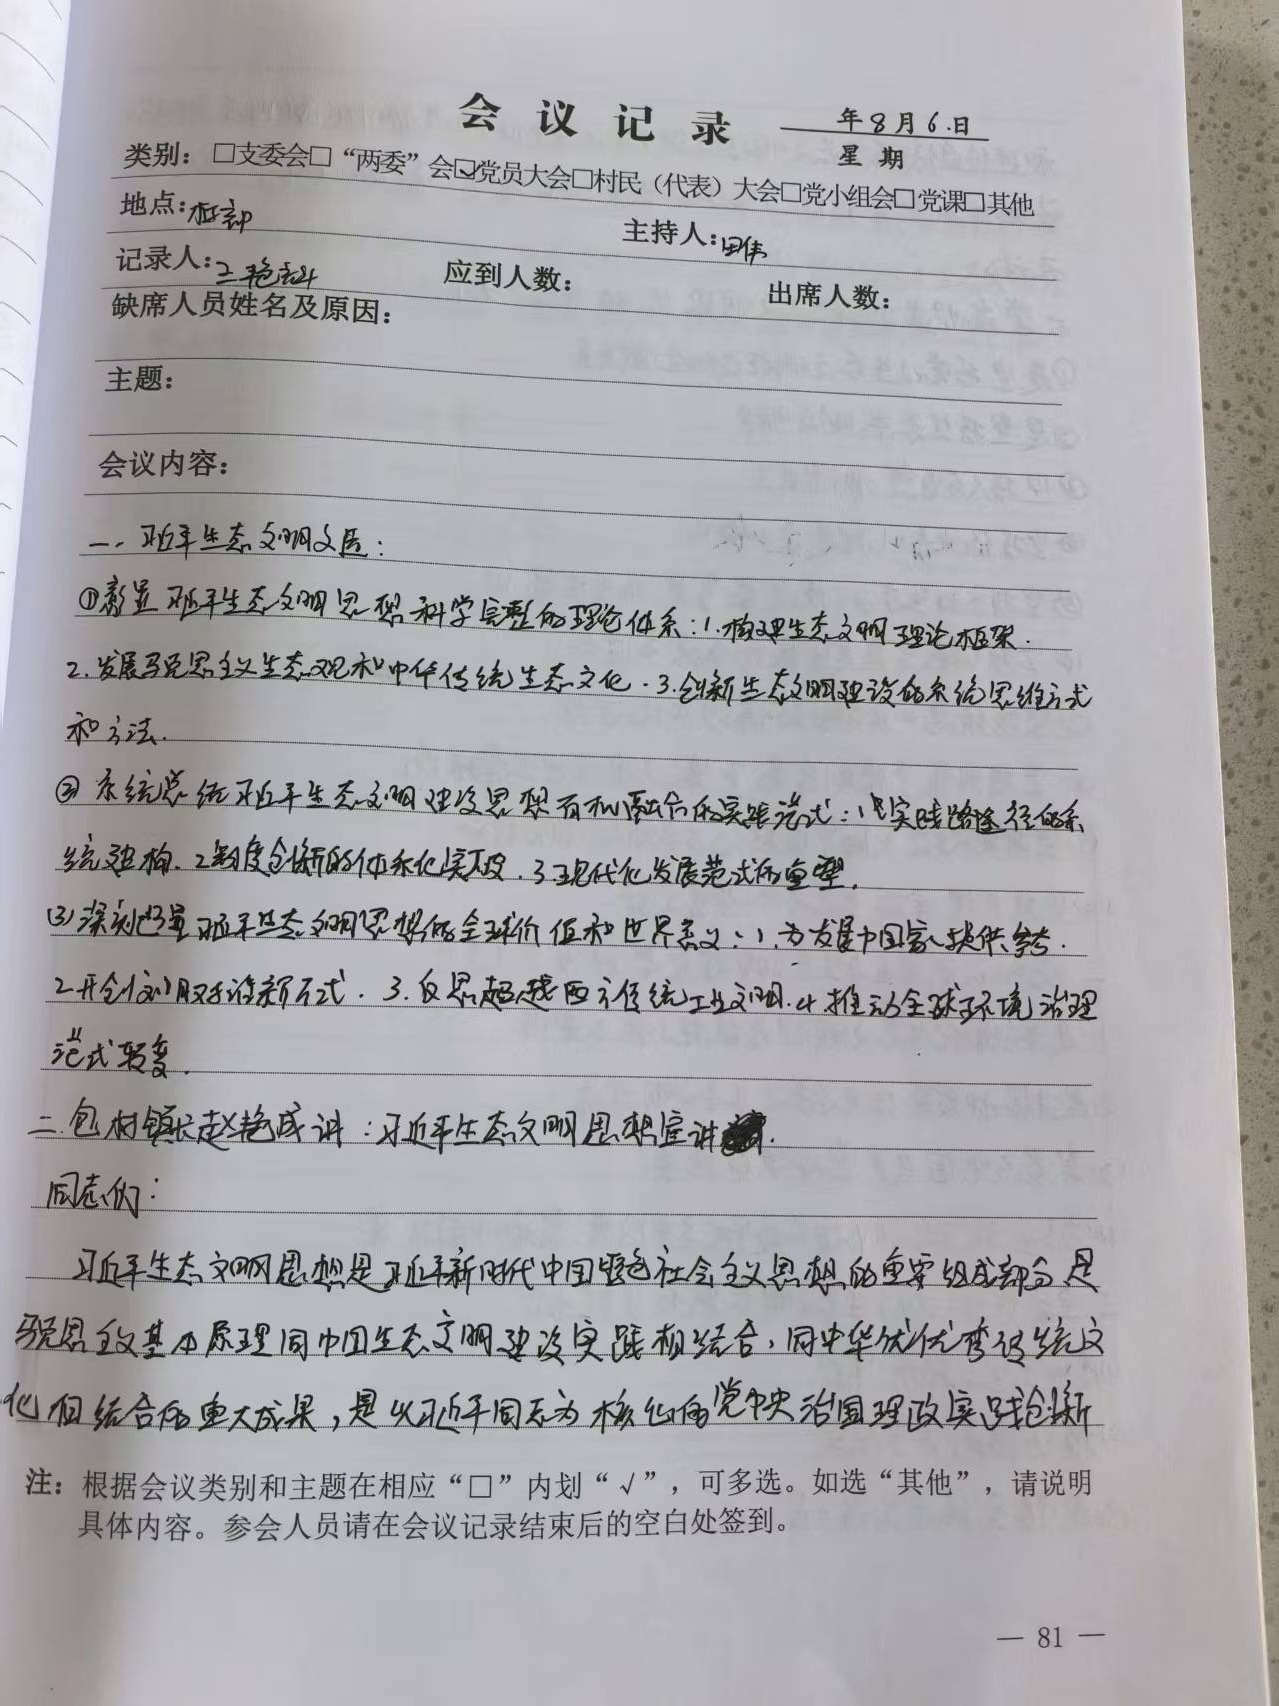 会 议 记 录 年8月6日
星 期
类别：□支委会□“两委”会☑党员大会□村民（代表）大会□党小组会□党课□其他
地点：村部 主持人：田伟
记录人： 应到人数： 出席人数：
缺席人员姓名及原因：
主题：
会议内容：
一．习近平生态文明文选：
①彰显习近平生态文明思想科学完整的理论体系：1.构建生态文明理论框架．
2.发展马克思主义生态观和中华传统生态文化．3.创新生态文明建设的系统思维方式
和方法．
② 系统总结习近平生态文明建设思想有机融合的实践范式：1.实践路途径的系
统建构．2.制度创新的体系化突破．3.现代化发展范式的重塑．
(3)深刻 习近平生态文明思想的全球价值和世界意义：1.为发展中国家提供参考．
2.开创文明对话新方式．3.反思超越西方传统工业文明．4.推动全球环境治理
范式转变．
二．包村镇长赵艳成讲：习近平生态文明思想宣讲
同志们：
习近平生态文明思想是习近平新时代中国特色社会主义思想的重要组成部分是
马克思主义基本原理同中国生态文明建设实践相结合，同中华优优秀传统文
化相结合的重大成果，是以习近平同志为核心的党中央治国理政实践创新
注：根据会议类别和主题在相应“□”内划“√”，可多选。如选“其他”，请说明
具体内容。参会人员请在会议记录结束后的空白处签到。
— 81 —